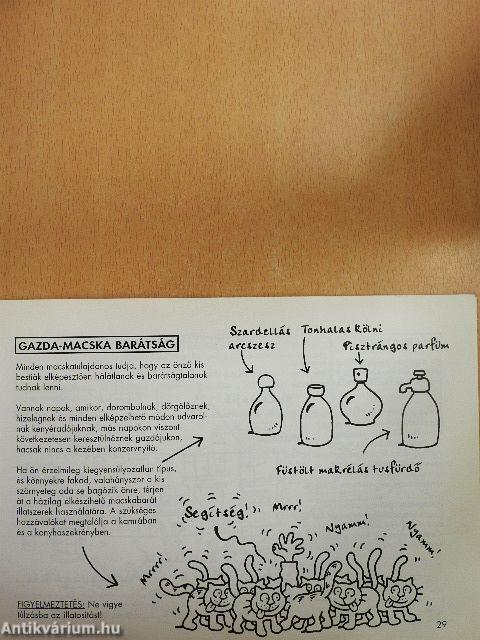 GAZDA-MACSKA BARÁTSÁG
Minden macskatulajdonos tudja, hogy az önző kis
bestiák elképesztően hálátlanok és barátságtalanok
tudnak lenni.
Vannak napok, amikor, dorombolnak, dörgölőznek,
hízelegnek és minden elképzelhető módon udvarol-
nak kenyéradójuknak, más napokon viszont
következetesen keresztülnéznek gazdájukon,
hacsak nincs a kezében konzervnyitó.
Ha ön érzelmileg kiegyensúlyozatlan típus,
és könnyekre fakad, valahányszor a kis
szörnyeteg oda se bagózik önre, térjen
át a házilag elkészíthető macskabarát
illatszerek használatára. A szükséges
hozzávalókat megtalálja a kamrában
és a konyhaszekrényben.
FIGYELMEZTETÉS: Ne vigye
túlzásba az illatosítást!
Szardellás
arcszesz
Tonhalas kölni
Pisztrángos parfüm
Füstölt makrélás tusfürdő
Segítség!
Mrrr!
Nyamm!
Nyamm!
Mrrrr!
29
Antikvárium.hu